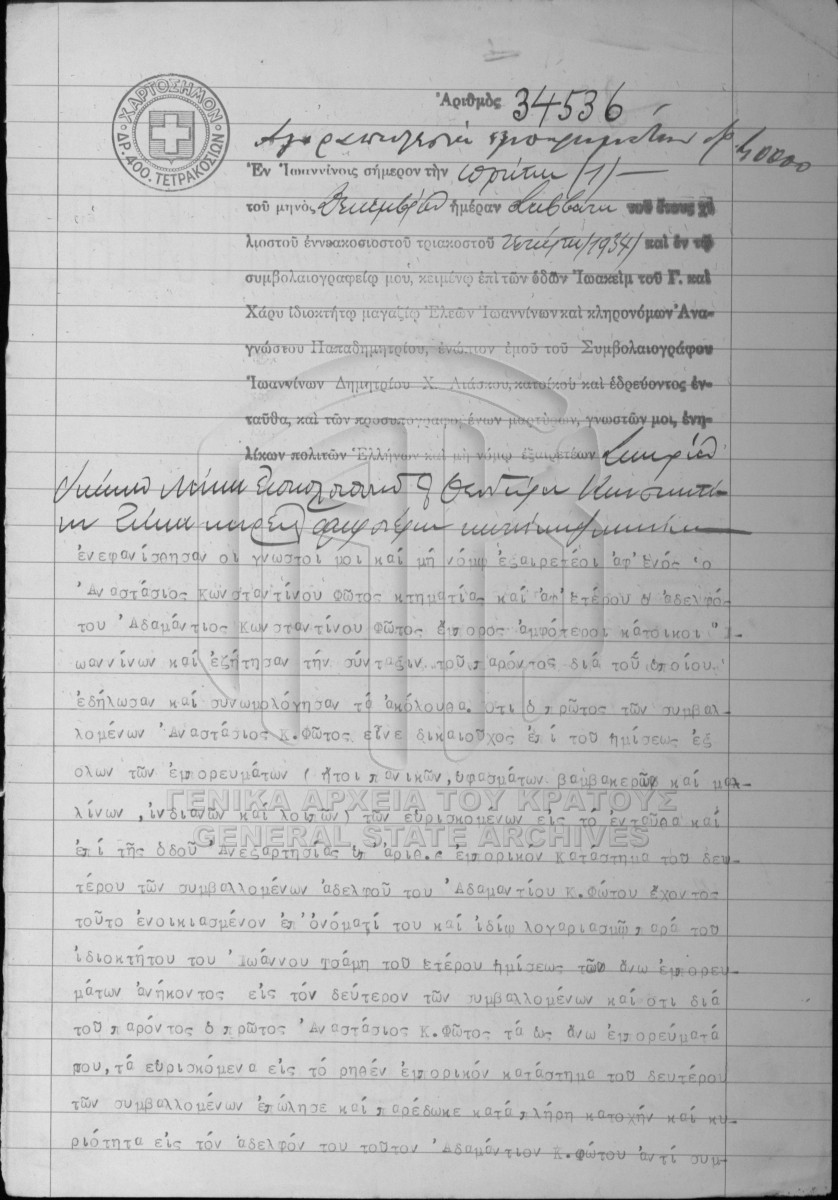 ΧΑΡΤΟΣΗΜΟΝ
ΔΡ. 400. ΤΕΤΡΑΚΟΣΙΩΝ
Ἀριθμὸς 34536
Ἐν Ἰωαννίνοις σήμερον τὴν πρώτην /1/ —
τοῦ μηνὸς Δεκεμβρίου ἡμέραν Σάββατον τοῦ ἔτους χι
λιοστοῦ ἐννεακοσιοστοῦ τριακοστοῦ τετάρτου /1934/ καὶ ἐν τῷ
συμβολαιογραφείῳ μου, κειμένῳ ἐπὶ τῶν ὁδῶν Ἰωακεὶμ τοῦ Γ. καὶ
Χάρυ ἰδιοκτήτῳ μαγαζίῳ Ἐλεῶν Ἰωαννίνων καὶ κληρονόμων Ἀνα-
γνώστου Παπαδημητρίου, ἐνώπιον ἐμοῦ τοῦ Συμβολαιογράφου
Ἰωαννίνων Δημητρίου Χ. Λιάσκου, κατοίκου καὶ ἑδρεύοντος ἐν-
ταῦθα, καὶ τῶν προσυπογραφομένων μαρτύρων, γνωστῶν μοι, ἐνη-
λίκων πολιτῶν Ἑλλήνων καὶ μὴ νόμῳ ἐξαιρετέων
ἐνεφανίσθησαν οἱ γνωστοί μοι καί μή νόμῳ ἐξαιρετέοι ἀφ'ἑνός ὁ
Ἀναστάσιος Κωνσταντίνου Φῶτος κτηματίας καί ἀφ'ἑτέρου ὁ ἀδελφός
του Ἀδαμάντιος Κωνσταντίνου Φῶτος ἔμπορος ἀμφότεροι κάτοικοι Ἰ-
ωαννίνων καί ἐξήτησαν τήν σύνταξιν τοῦ παρόντος διά τοῦ ὁποίου
ἐδήλωσαν καί συνωμολόγησαν τά ἀκόλουθα. Ὅτι ὁ πρῶτος τῶν συμβαλ-
λομένων Ἀναστάσιος Κ. Φῶτος εἶνε δικαιοῦχος ἐπί τοῦ ἡμίσεως ἐξ
ὅλων τῶν ἐμπορευμάτων (ἤτοι πανικῶν, ὑφασμάτων βαμβακερῶν καί μαλ-
λίνων, ἰνδιανῶν καί λοιπῶν) τῶν εὑρισκομένων εἰς τό ἐνταῦθα καί
ΓΕΝΙΚΑ ΑΡΧΕΙΑ ΤΟΥ ΚΡΑΤΟΥΣ
GENERAL STATE ARCHIVES
ἐπί τῆς ὁδοῦ Ἀνεξαρτησίας ὑπ'ἀριθ. ἐμπορικόν κατάστημα τοῦ δευ-
τέρου τῶν συμβαλλομένων ἀδελφοῦ του Ἀδαμαντίου Κ. Φώτου ἔχοντος
τοῦτο ἐνοικιασμένον ἐπ'ὀνόματί του καί ἰδίῳ λογαριασμῷ παρά τοῦ
ἰδιοκτήτου του Ἰωάννου Τσάμη τοῦ ἑτέρου ἡμίσεως τῶν ἄνω ἐμπορευ-
μάτων ἀνήκοντος εἰς τόν δεύτερον τῶν συμβαλλομένων καί ὅτι διά
τοῦ παρόντος ὁ πρῶτος Ἀναστάσιος Κ. Φῶτος τά ὡς ἄνω ἐμπορεύματά
του, τά εὑρισκόμενα εἰς τό ρηθέν ἐμπορικόν κατάστημα τοῦ δευτέρου
τῶν συμβαλλομένων ἐπώλησε καί παρέδωκε κατά πλήρη κατοχήν καί κυ-
ριότητα εἰς τόν ἀδελφόν του τοῦτον Ἀδαμάντιον Κ. Φώτου ἀντί συμ-